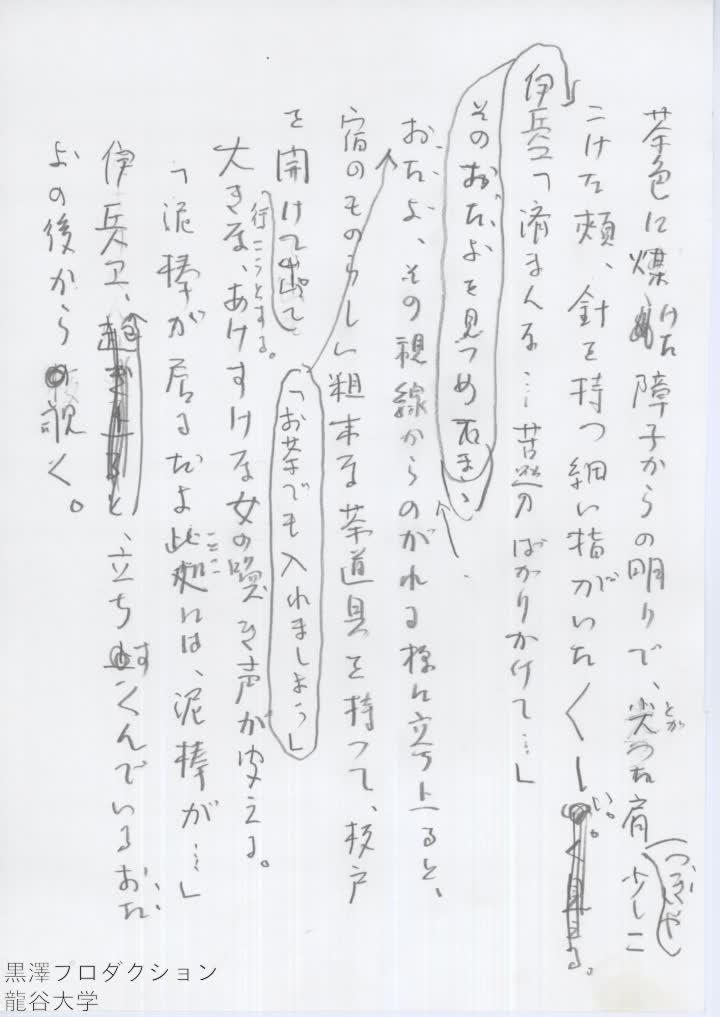 茶色に煤けた障子からの明りで、尖った肩、少しこ
とが
つぎや
こけた頬、針を持つ細い指がいたくしい。
伊兵ヱ「済まんな…苦労ばかりかけて…」
そのおたよを見つめたまゝ
おたよ、その視線からのがれる様に立ち上ると、
宿のものらしい粗末な茶道具を持って、杉戸
を開けて出て
行こうとする。
「お茶でも入れましょう」
大きな、あけすけな女の喚き声が聞える。
「泥棒が居るだよ此処には、泥棒が…」
ここ
伊兵ヱ、立ちすくんでいるおた
よの後から覗く。
黒澤プロダクション
龍谷大学